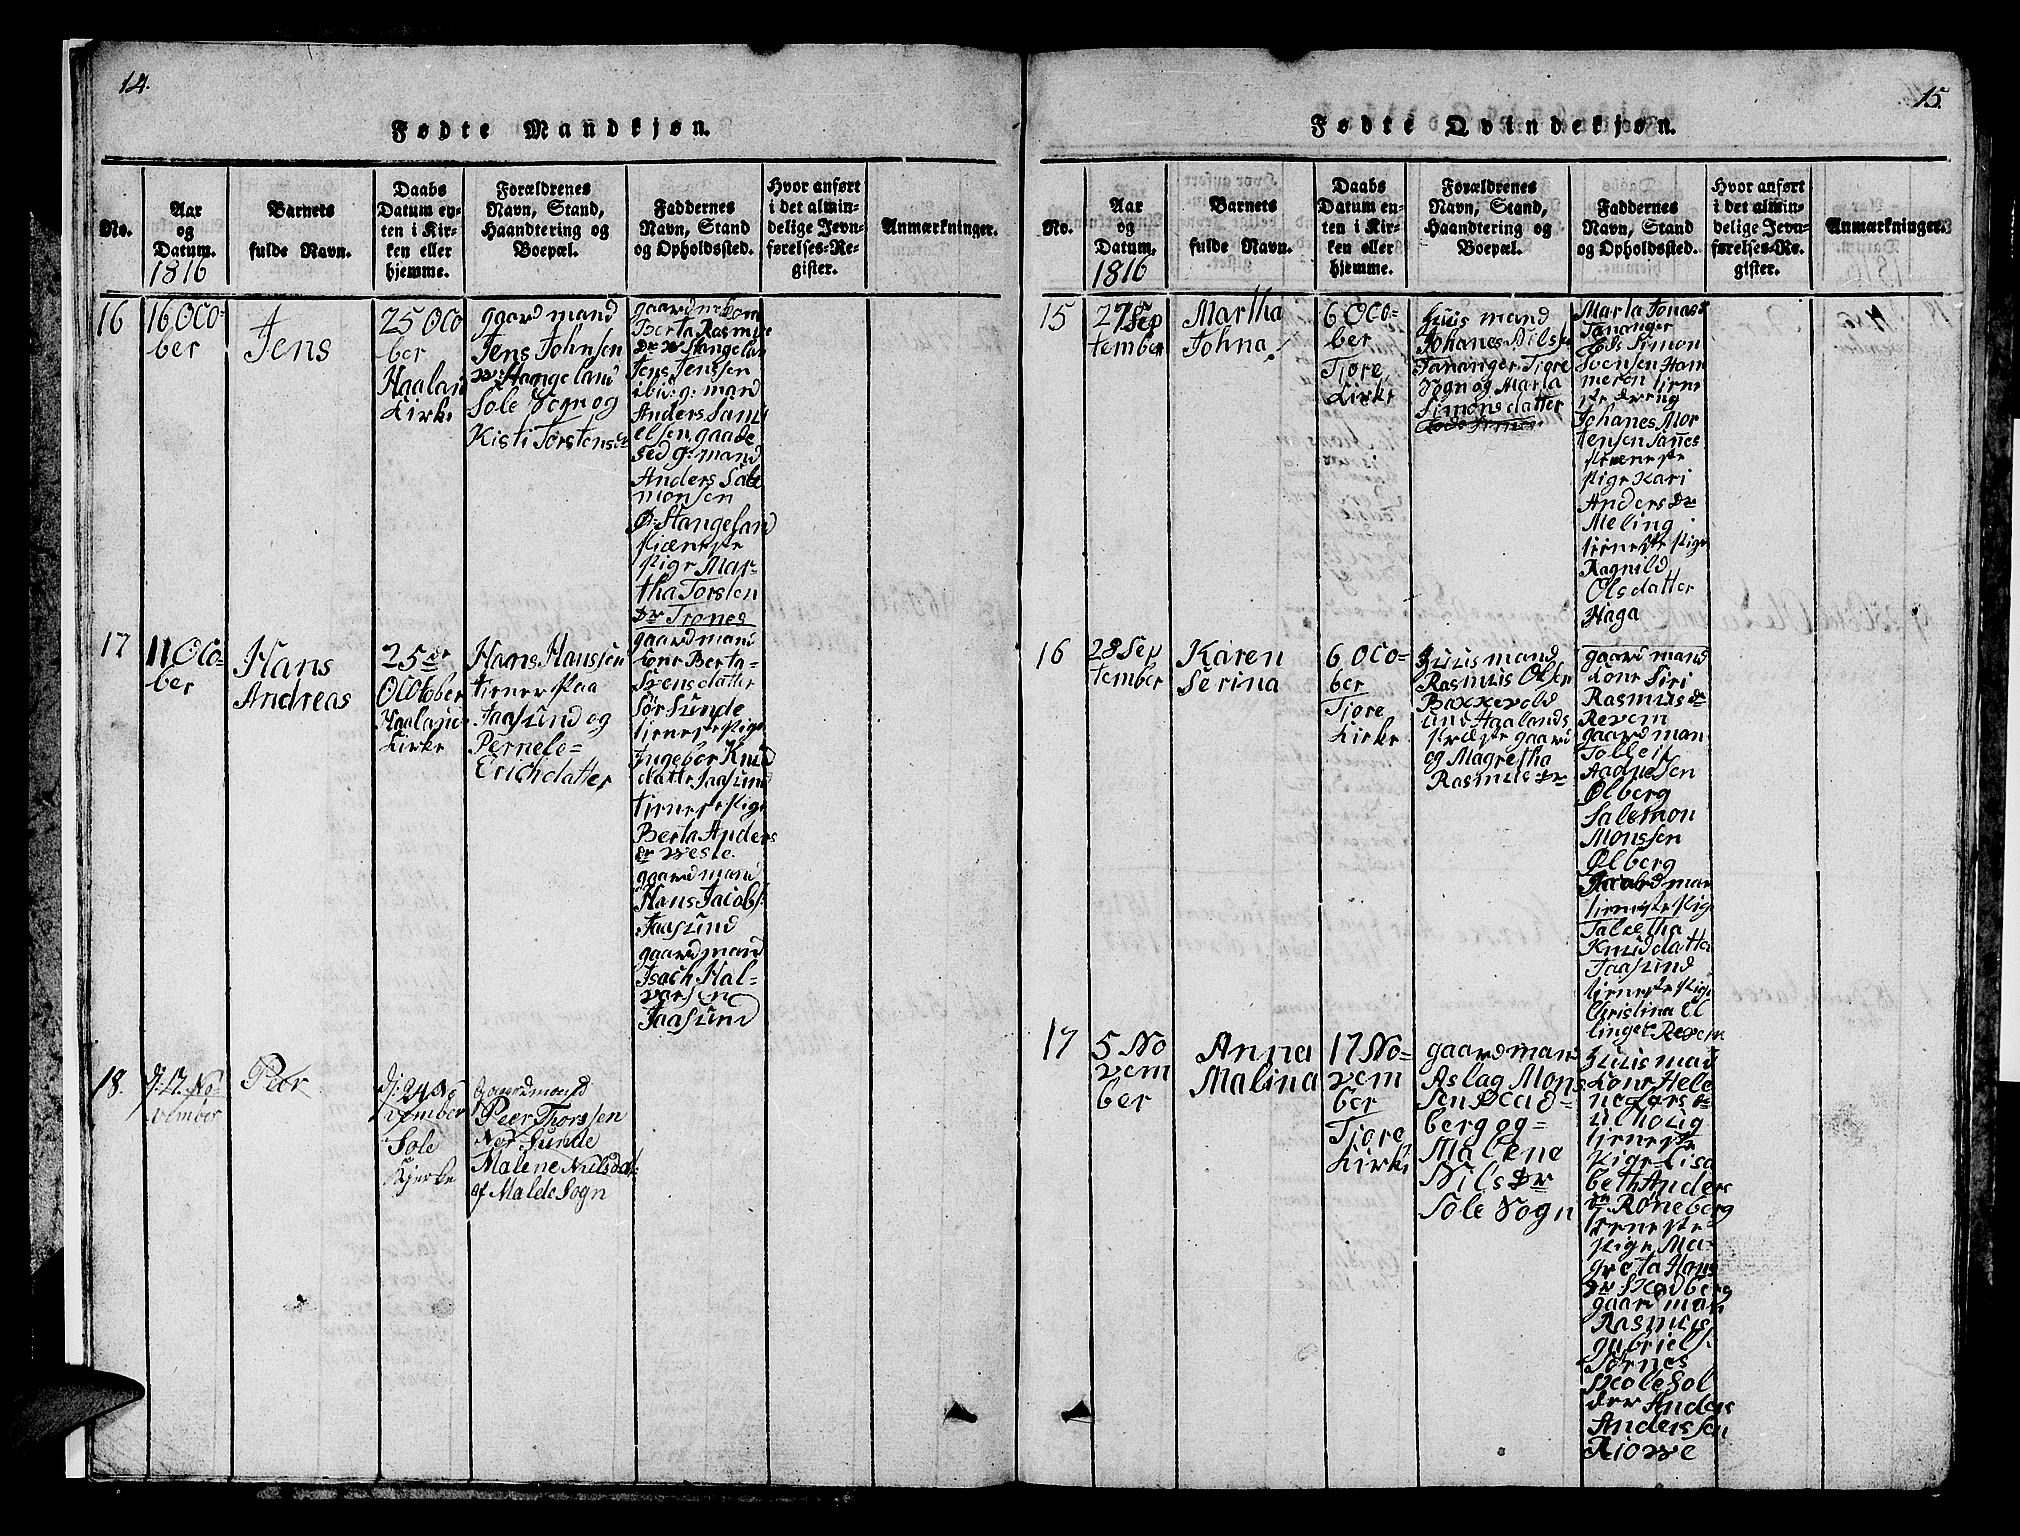 14.
Fødte Mandkjøn.
No.
Aar
og
Datum.
1816
Barnets
fulde Navn.
Daabs
Datum en-
ten i Kir-
ken eller
hjemme.
Forældrenes
Navn, Stand,
Haandtering og
Boepæl.
Faddernes
Navn, Stand
og Opholdssted.
Hvor anført
i det almin-
delige Jevn-
førelses-Re-
gister.
Anmærkninger.
16
16 Oco-
ber
Jens
25 Oco
ber
Haalan
Kirke
gaardmand
Jens Johnsen
Stangeland
Sole Sogn og
Kisti Torstensd
gaardm kone
Berta Rasmus
Dr Stangelan
Jens Jenssen
g: mand
Anders Sam
elsen gaade
sed g: mand
Anders Sale
monsen
Ø: Stangeland
tieneste
pige Mar-
tha Torsten
Dr Tranes
17
11 Oco-
ber
Hans
Andreas
25 de
Ocotober
Haaland
Kirke
Hans Hanssen
tiener paa
Jaasund og
Pernele=
Erichdatter
gaardmand
kone Berta-
Svensdatter
Sør Sunde
tieneste pige
Ingebor Knud
datte Jaasund
tieneste pige
Berta Anders
dr Vesle.
gaardmand
Hans Jacobs:
Jaasund
gaardmand
Isach Hal-
varsen
Jaasund
18.
d: 17. No-
vember
Peer
d: 24 No
vember
Sole
Kjerke
Gaardmand
Peer Thorssen
Sunde
Malene Nielsdat:
af Malde Sogn
15.
Fødte Qvindekjøn.
No.
Aar
og
Datum.
1816
Barnets
fulde Navn.
Daabs
Datum en-
ten i Kir-
ken eller
hjemme.
Forældrenes
Navn, Stand,
Haandtering og
Boepæl.
Faddernes
Navn, Stand
og Opholdssted.
Hvor anført
i det almin-
delige Jevn-
førelses-Re-
gister.
Anmærkninger.
15
27 Sep
tember
Martha
Johna
6 Oco-
ber
Tjore
Kirke
Huus mand
Johanes Nilsen
Tananger Tjore
Sogn og Marta
Simonsdatter
Marta Jonasd
Tananger
Simon
Svensen Ham
meren tiene
ste dreng
Johanes Mor
tensen Sønnes
tieneste
pige Kari
Anders Dr
Meling
tieneste pige
Ragnild
Olsdatter
Haga
16
28 Sep
tember
Karen
Serina
6 Oco-
ber
Tjore
Kirke
Huusmand
Rasmus Olsen
Bakkevold
Haalands
præste gaard
og Magretha
Rasmus Dr
gaardmand
kone Siri
Rasmus Dr
Revem
gaardman
Tolleif
Aadnesen
Ølberg
Salemon
Monssen
Ølberg
Gaardman
tieneste pige
Taletha
Knuddatter
Jaasund
tieneste pige
Christina El
linget Revem
17
5 No
vem
ber
Anna
Malina
17 No-
vem
ber
Tjore
Kirke
gaardman
Aslag Mons
sen Skad=
berg og=
Malena
Nils Dr
Sole Sogn
Huusmand
kone Hele
ne Lars D
Ulhoug
tieneste
pige Lisa
beth Anders
Dr Røneberg
tieneste
pige Ma-
greta Hans
Dr Skadberg
gaardman
Rasmus
gabriels:
Tørnes
Skole Hol
der Ander
Anderssen